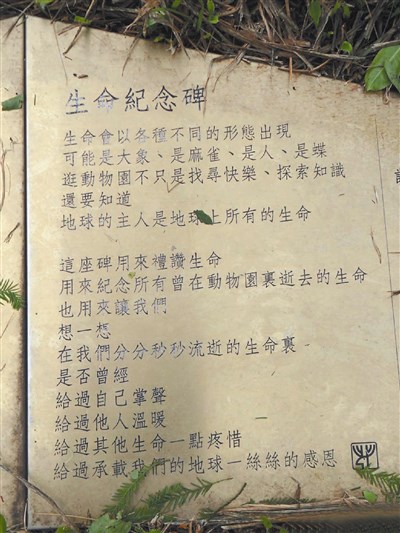 生命紀念碑
生命會以各種不同的形態出現
可能是大象、是麻雀、是人、是蝶
逛動物園不只是找尋快樂、探索知識
還要知道
地球的主人是地球上所有的生命
這座碑用來禮讚生命
用來紀念所有曾在動物園裏逝去的生命
也用來讓我們
想一想
在我們分分秒秒流逝的生命裏
是否曾經
給過自己掌聲
給過他人溫暖
給過其他生命一點疼惜
給過承載我們的地球一絲絲的感恩